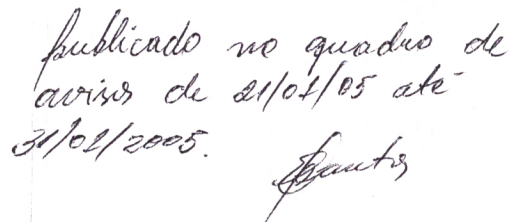 Publicado no quadro de
avisos de 21/01/05 até
31/01/2005.